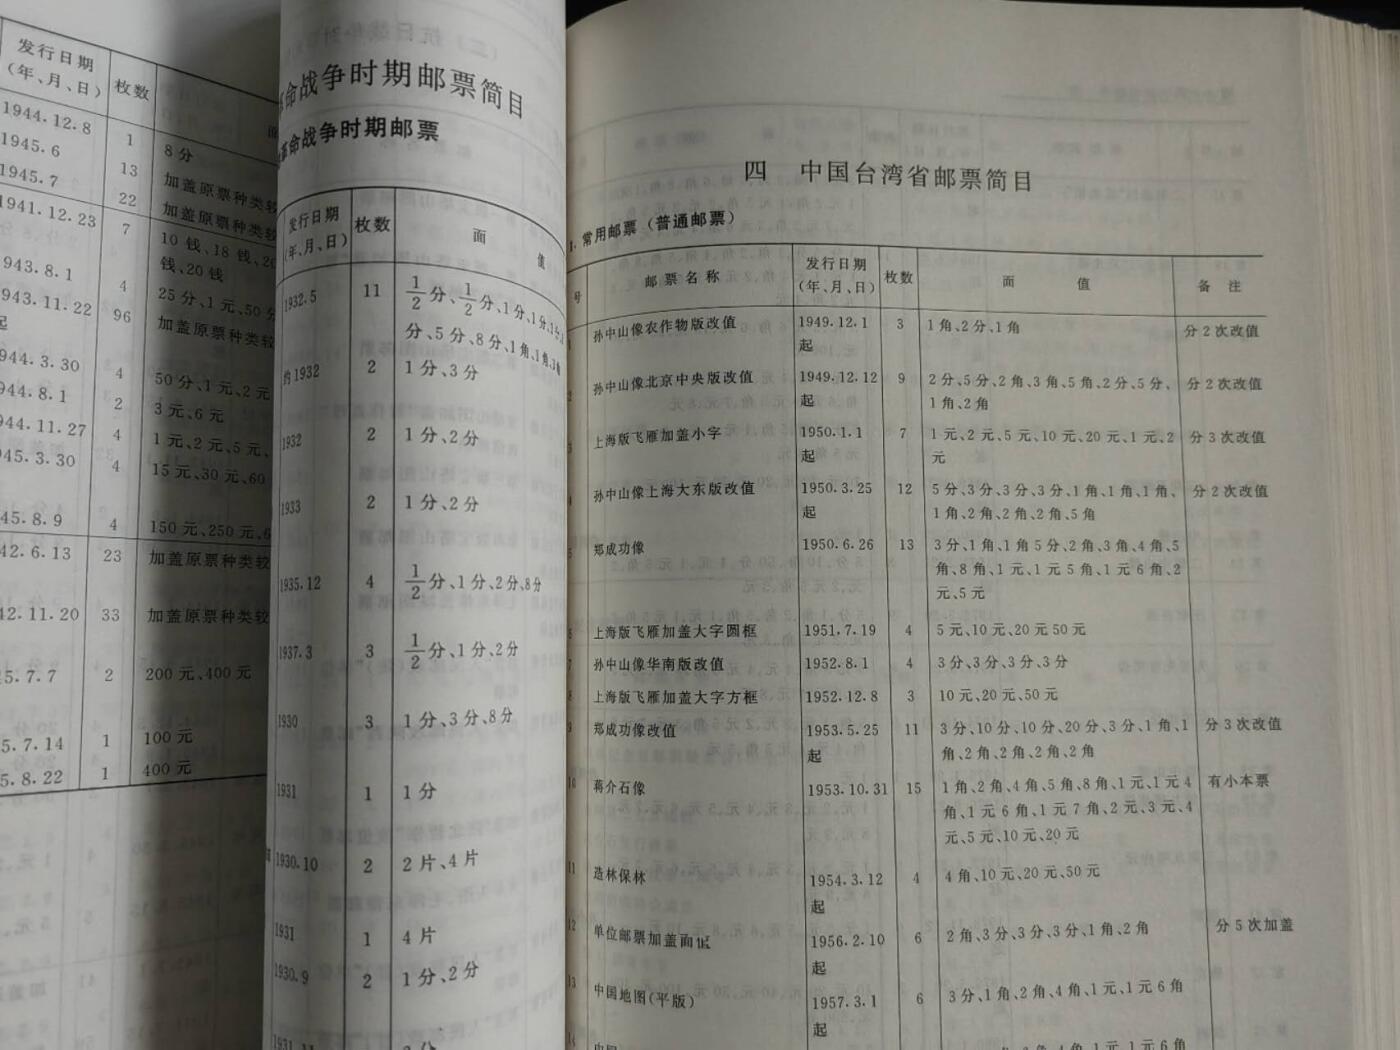 发行日期
（年、月、日） 枚数
1944.12.8 1 8分
1945.6 13 加盖原票种类较
1945.7 22 加盖原票种类较
1941.12.23 7 10钱、18钱、20
钱、20钱
943.8.1 4 25分、1元、50分
943.11.22 96 加盖原票种类较
起
944.3.30 4 50分、1元、2元
944.8.1 2 3元、6元
944.11.27 4 1元、2元、5元、
945.3.30 4 15元、30元、60
45.8.9 4 150元、250元、6
42.6.13 23 加盖原票种类较
42.11.20 33 加盖原票种类较
5.7.7 2 200元、400元
5.7.14 1 100元
5.8.22 1 400元
命战争时期邮票简目
革命战争时期邮票
发行日期
（年、月、日） 枚数 面 值
1932.5 11 1/2分、1/2分、1分、1分、
分、5分、8分、1角、1角、3角
约1932 2 1分、3分
1932 2 1分、2分
1933 2 1分、2分
1935.12 4 1/2分、1分、2分、8分
1937.3 3 1/2分、1分、2分
1930 3 1分、3分、8分
1931 1 1分
1930.10 2 2片、4片
1931 1 4片
1930.9 2 1分、2分
四 中国台湾省邮票简目
1. 常用邮票（普通邮票）
号 邮票名称 发行日期
（年、月、日） 枚数 面 值 备注
孙中山像农作物版改值 1949.12.1 3 1角、2分、1角 分2次改值
起
2 孙中山像北京中央版改值 1949.12.12 9 2分、5分、2角、3角、5角、2分、5分、 分2次改值
起 1角、2角
3 上海版飞雁加盖小字 1950.1.1 7 1元、2元、5元、10元、20元、1元、2 分3次改值
起 元
4 孙中山像上海大东版改值 1950.3.25 12 5分、3分、3分、3分、1角、1角、1角、 分2次改值
起 1角、2角、2角、2角、5角
5 郑成功像 1950.6.26 13 3分、1角、1角5分、2角、3角、4角、5
角、8角、1元、1元5角、1元6角、2
元、5元
6 上海版飞雁加盖大字圆框 1951.7.19 4 5元、10元、20元50元
7 孙中山像华南版改值 1952.8.1 4 3分、3分、3分、3分
8 上海版飞雁加盖大字方框 1952.12.8 3 10元、20元、50元
9 郑成功像改值 1953.5.25 11 3分、10分、10分、20分、3分、1角、1 分3次改值
起 角、2角、2角、2角、2角
10 蒋介石像 1953.10.31 15 1角、2角、4角、5角、8角、1元、1元4 有小本票
角、1元6角、1元7角、2元、3元、4
元、5元、10元、20元
11 造林保林 1954.3.12 4 4角、10元、20元、50元
起
12 单位邮票加盖面值 1956.2.10 6 2角、3分、3分、3分、1角、2角 分5次加盖
起
13 中国地图(平版) 1957.3.1 6 3分、1角、2角、4角、1元、1元6角
起